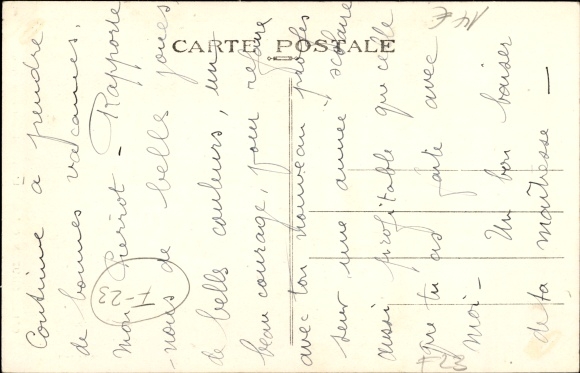 CARTE POSTALE
Continue à prendre
de bonnes vacances,
mon Pierrot - Rapporte
-nous de belles joues
de belles couleurs, un
beau courage, pour refaire
avec ton nouveau
seur une année scolaire
aussi profitable que celle
que tu as faite avec
moi -
Un bon baiser
de ta maîtresse —
F-23
14 €
23